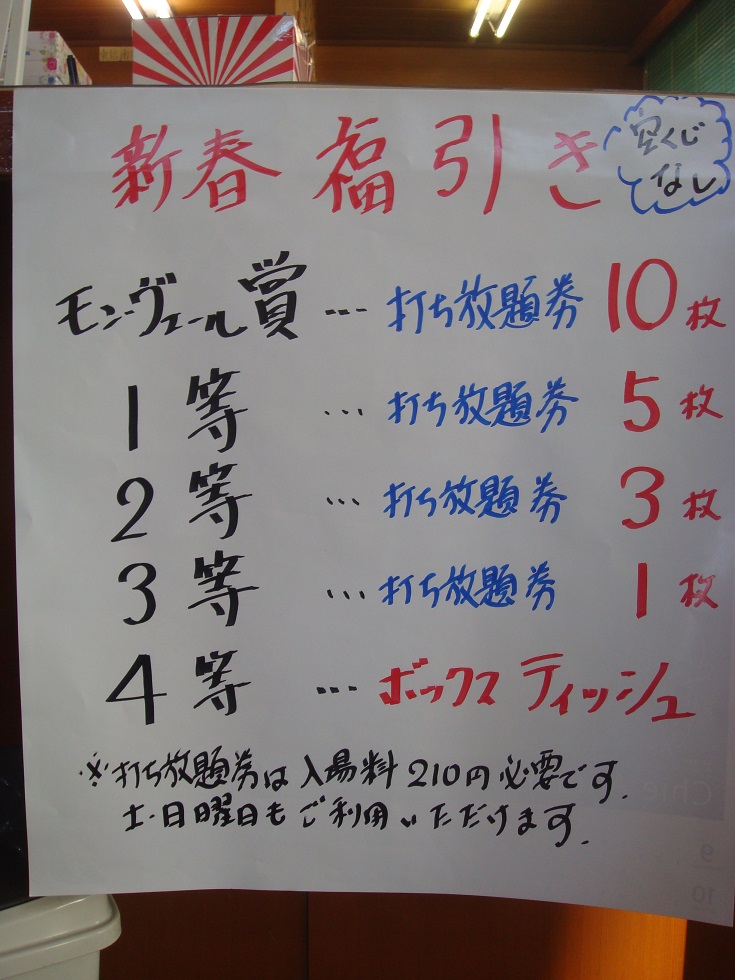 新春 福引き
空くじ
なし
モンヴェール賞 … 打ち放題券 10枚
1等 … 打ち放題券 5枚
2等 … 打ち放題券 3枚
3等 … 打ち放題券 1枚
4等 … ボックスティッシュ
※打ち放題券は入場料210円必要です.
土・日曜日もご利用いただけます.